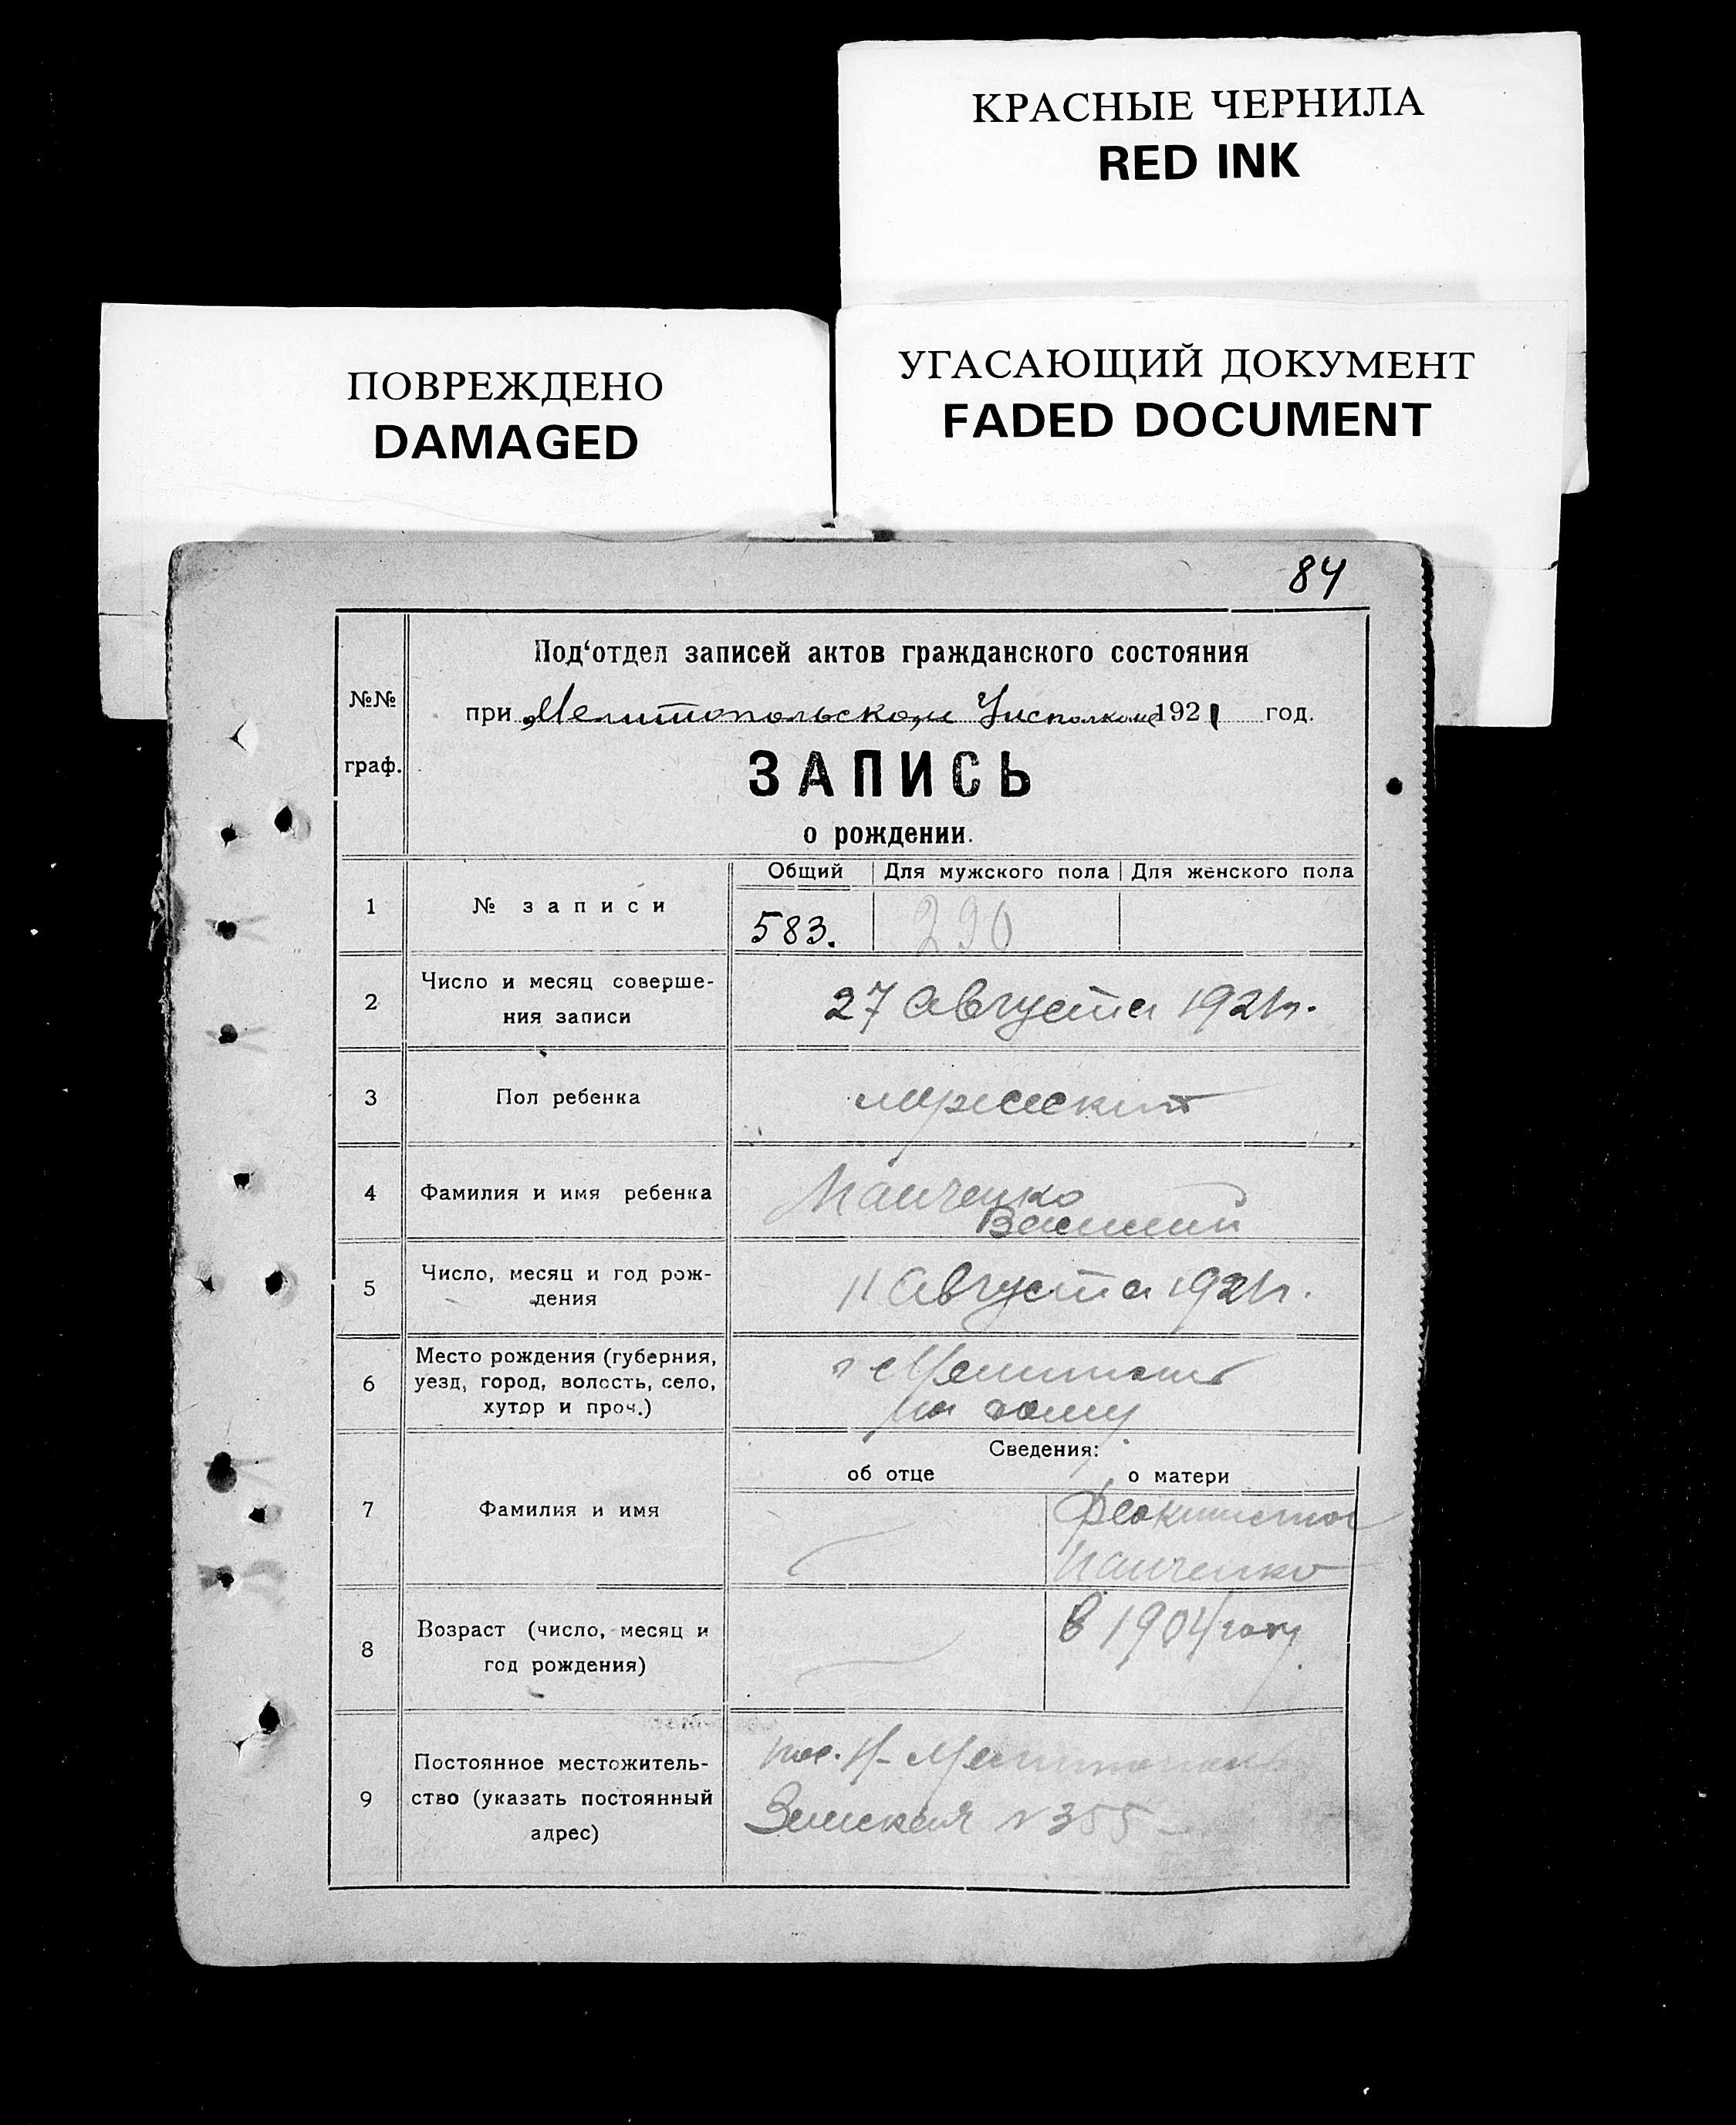 КРАСНЫЕ ЧЕРНИЛА
RED INK
ПОВРЕЖДЕНО
DAMAGED
УГАСАЮЩИЙ ДОКУМЕНТ
FADED DOCUMENT
84
№№
граф.
Под‘отдел записей актов гражданского состояния
при Мелитопольском Уисполкоме 1921 год.
ЗАПИСЬ
о рождении.
Общий Для мужского пола Для женского пола
1 № записи 583. 290
2 Число и месяц соверше-
ния записи
27 Августа 1921 г.
3 Пол ребенка мужский
4 Фамилия и имя ребенка Панченко
Василий
5 Число, месяц и год рож-
дения
11 Августа 1921 г.
6 Место рождения (губерния,
уезд, город, волость, село,
хутор и проч.)
г Мелитополь
на дому
Сведения:
об отце о матери
7 Фамилия и имя
Феоктиста
Панченко
8 Возраст (число, месяц и
год рождения)
в 1904 году
9 Постоянное местожитель-
ство (указать постоянный
адрес)
пос. Н-Мелитополь
Земская № 355